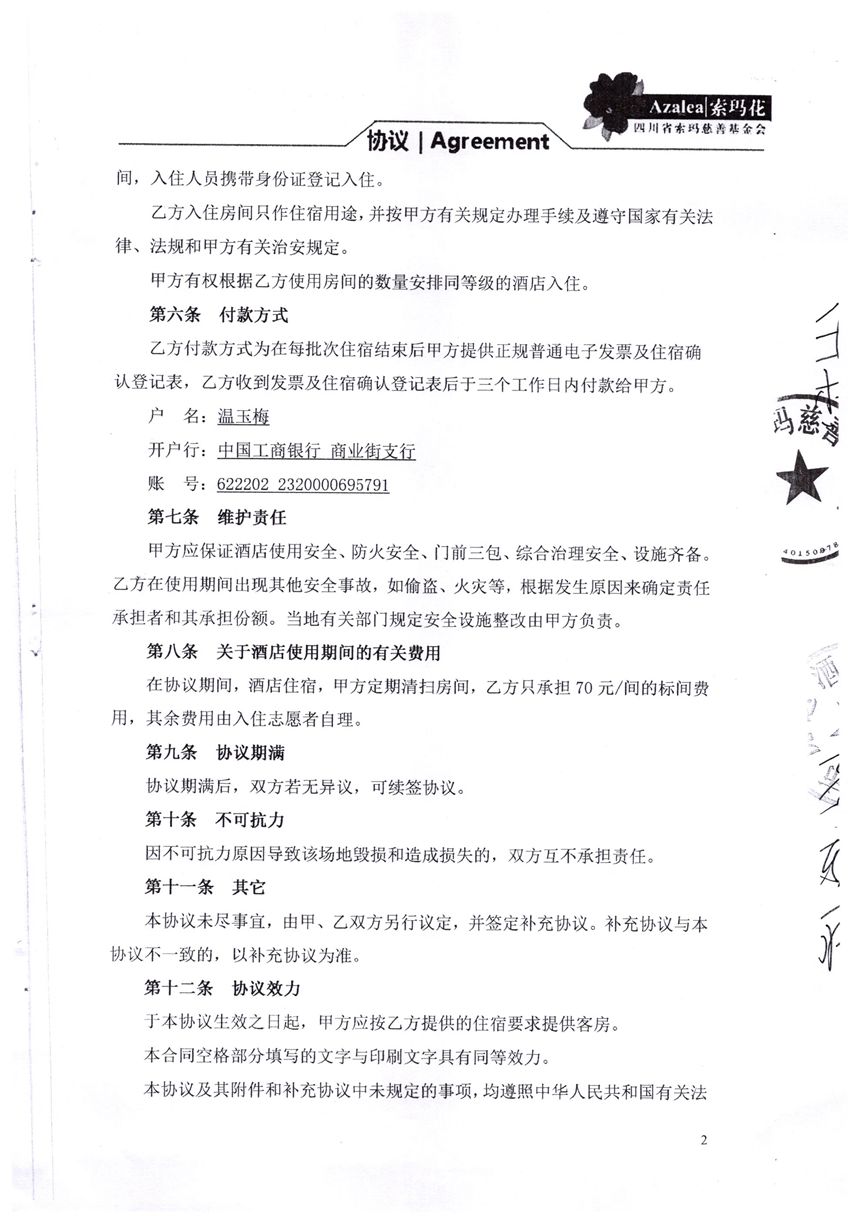 Azalea|索玛花
四川省索玛慈善基金会
协议 | Agreement
间，入住人员携带身份证登记入住。
乙方入住房间只作住宿用途，并按甲方有关规定办理手续及遵守国家有关法
律、法规和甲方有关治安规定。
甲方有权根据乙方使用房间的数量安排同等级的酒店入住。
第六条 付款方式
乙方付款方式为在每批次住宿结束后甲方提供正规普通电子发票及住宿确
认登记表，乙方收到发票及住宿确认登记表后于三个工作日内付款给甲方。
户 名：温玉梅
开户行：中国工商银行 商业街支行
账 号：622202 2320000695791
第七条 维护责任
甲方应保证酒店使用安全、防火安全、门前三包、综合治理安全、设施齐备。
乙方在使用期间出现其他安全事故，如偷盗、火灾等，根据发生原因来确定责任
承担者和其承担份额。当地有关部门规定安全设施整改由甲方负责。
第八条 关于酒店使用期间的有关费用
在协议期间，酒店住宿，甲方定期清扫房间，乙方只承担 70 元/间的标间费
用，其余费用由入住志愿者自理。
第九条 协议期满
协议期满后，双方若无异议，可续签协议。
第十条 不可抗力
因不可抗力原因导致该场地毁损和造成损失的，双方互不承担责任。
第十一条 其它
本协议未尽事宜，由甲、乙双方另行议定，并签定补充协议。补充协议与本
协议不一致的，以补充协议为准。
第十二条 协议效力
于本协议生效之日起，甲方应按乙方提供的住宿要求提供客房。
本合同空格部分填写的文字与印刷文字具有同等效力。
本协议及其附件和补充协议中未规定的事项，均遵照中华人民共和国有关法
2
玛慈善
40150978
酒